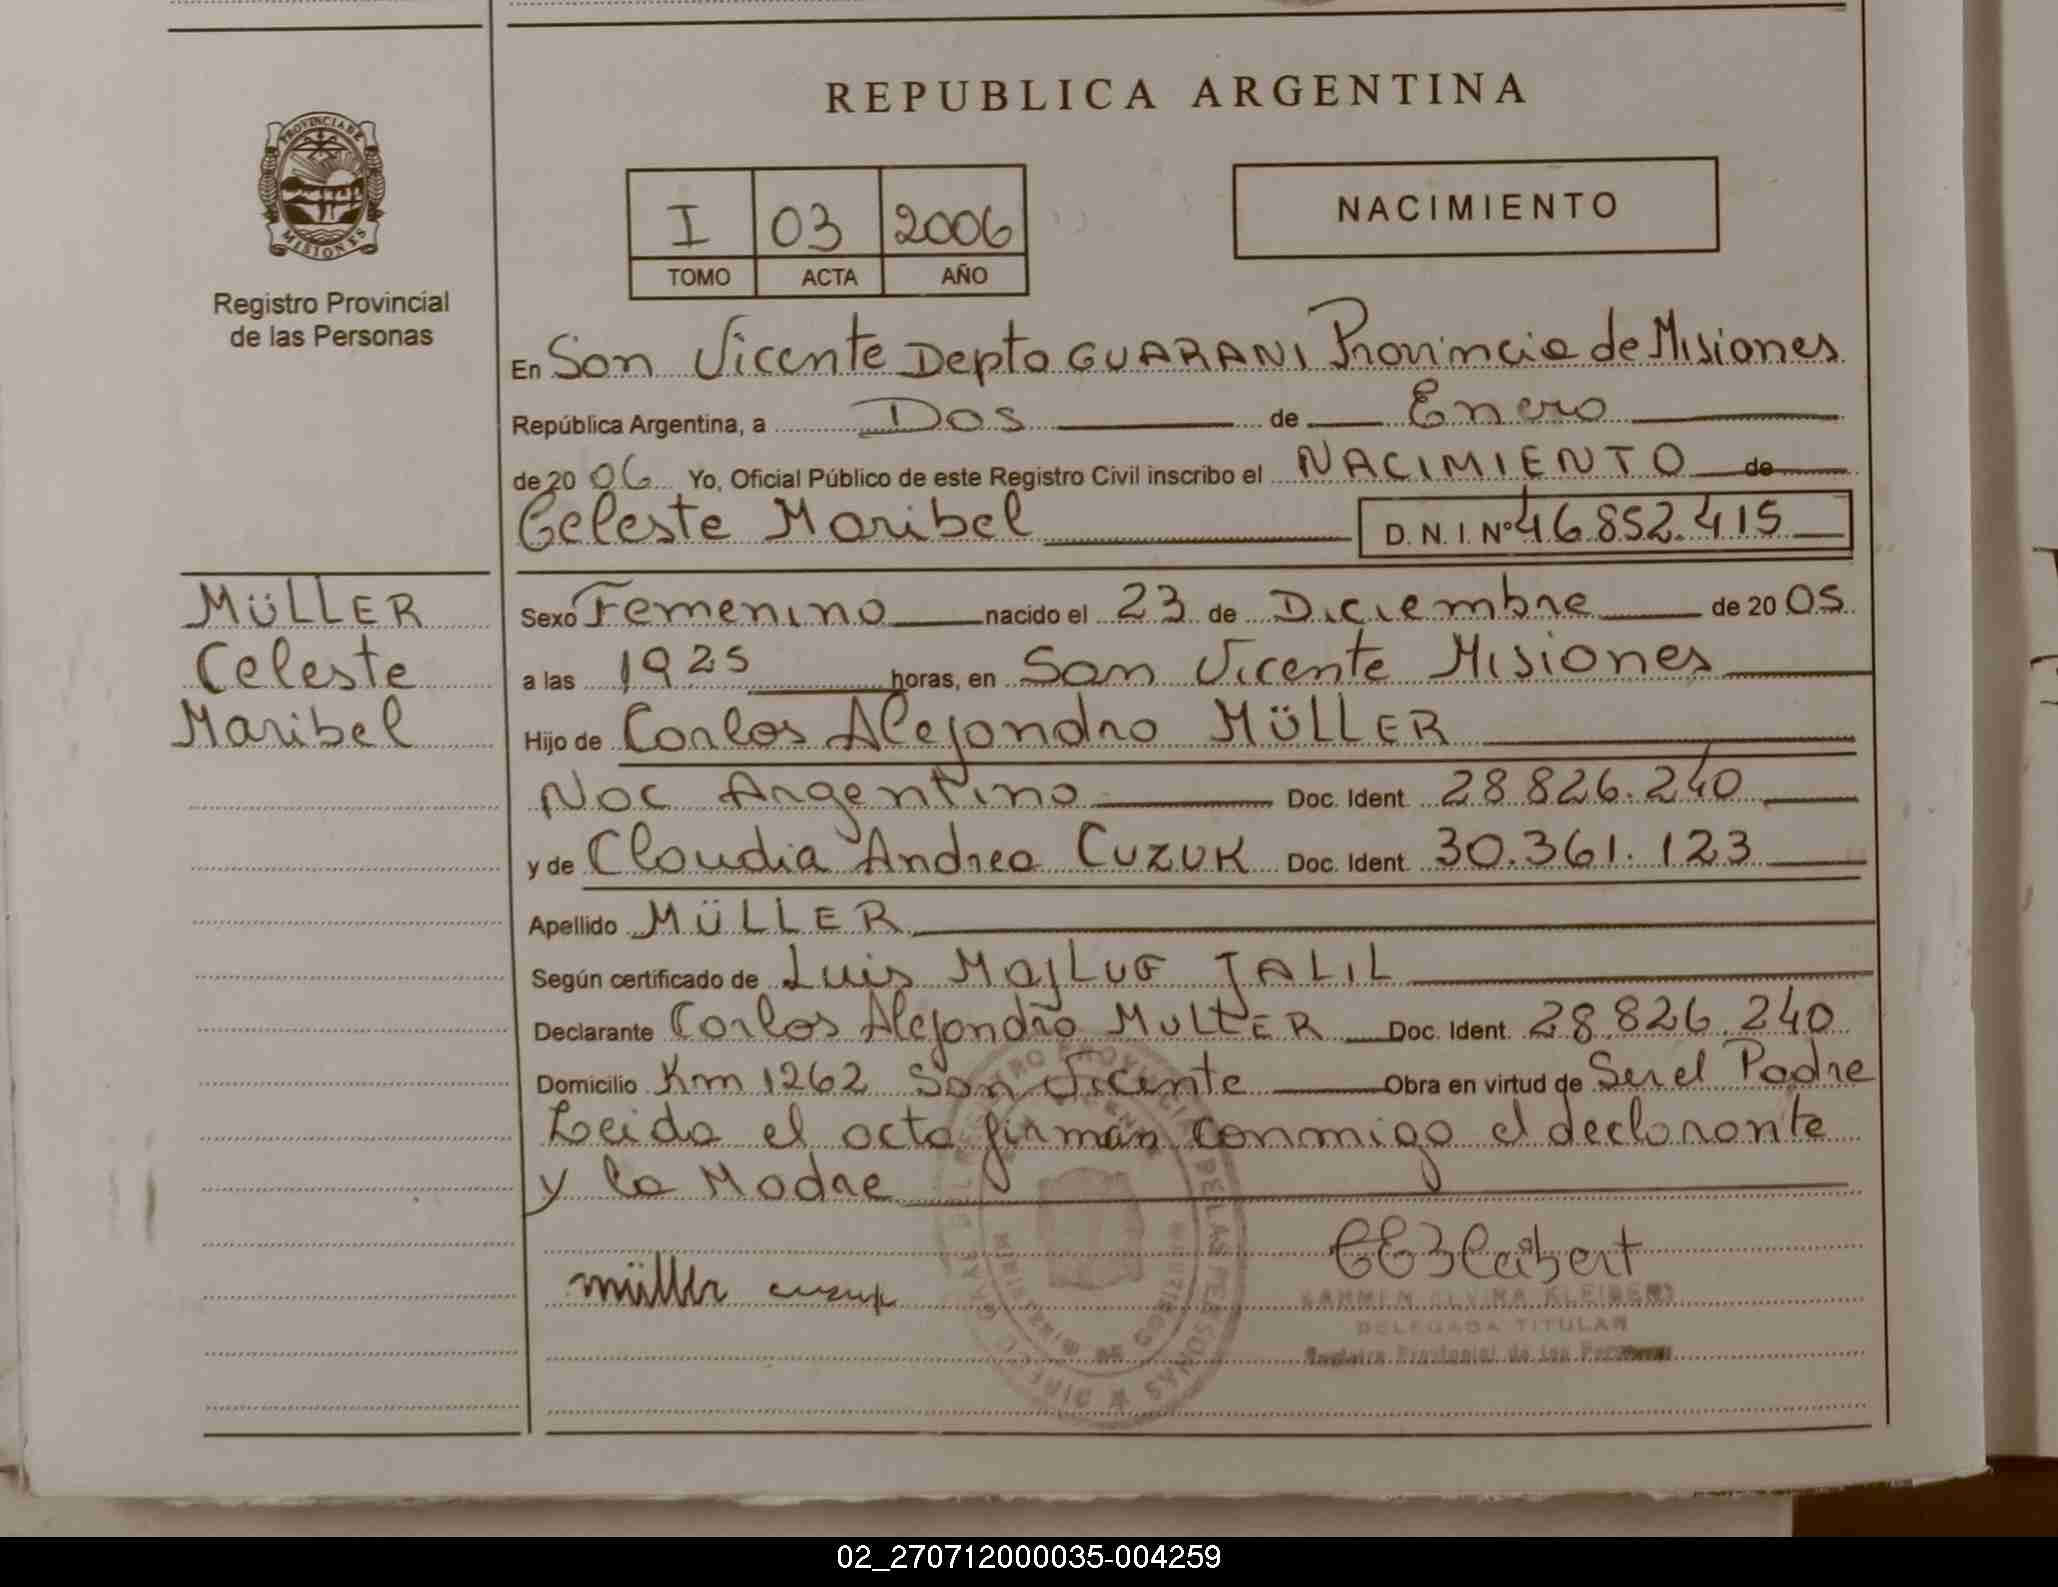 REPUBLICA ARGENTINA
PROVINCIA DE
MISIONES
Registro Provincial
de las Personas
I 03 2006
TOMO ACTA AÑO
NACIMIENTO
En San Vicente Depto GUARANI Provincia de Misiones
República Argentina, a Dos de Enero
de 2006 Yo, Oficial Público de este Registro Civil inscribo el NACIMIENTO de
Celeste Maribel D.N.I. Nº 46.852.415
MÜLLER
Celeste
Maribel
Sexo Femenino nacido el 23 de Diciembre de 2005
a las 1925 horas, en San Vicente Misiones
Hijo de Carlos Alejandro MÜLLER
Nac Argentino Doc. Ident. 28.826.240
y de Claudia Andrea CUZUK Doc. Ident. 30.361.123
Apellido MÜLLER
Según certificado de Luis MajLuf JALIL
Declarante Carlos Alejandro MULLER Doc. Ident. 28.826.240
Domicilio Km 1262 San Vicente Obra en virtud de Ser el Padre
Leida el acta firman conmigo el declarante
y la Madre
müller
KARMEN ELVIRA KLEIBERT
DELEGADA TITULAR
Registro Provincial de las Personas
02_270712000035-004259